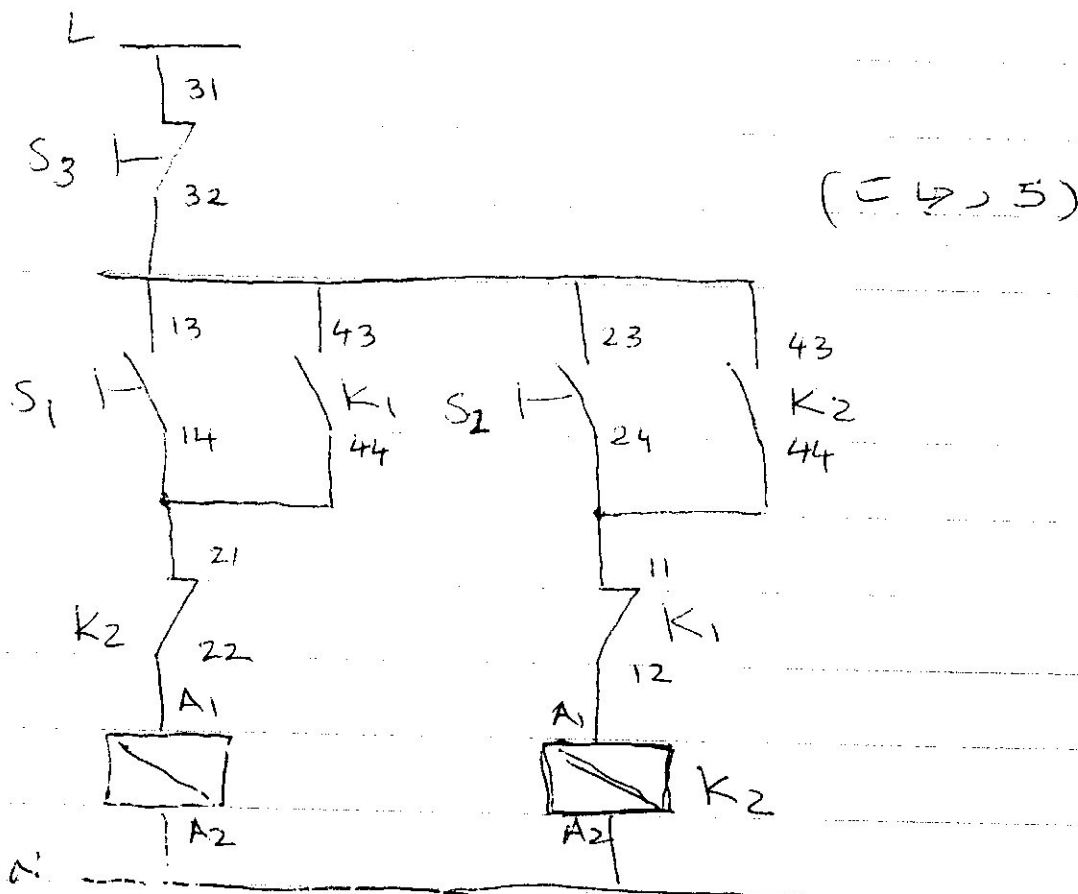 L
31
S3
32
13
43
23
43
S1
K1
S2
K2
14
44
24
44
21
11
K2
K1
22
12
A1
A1
K2
A2
A2